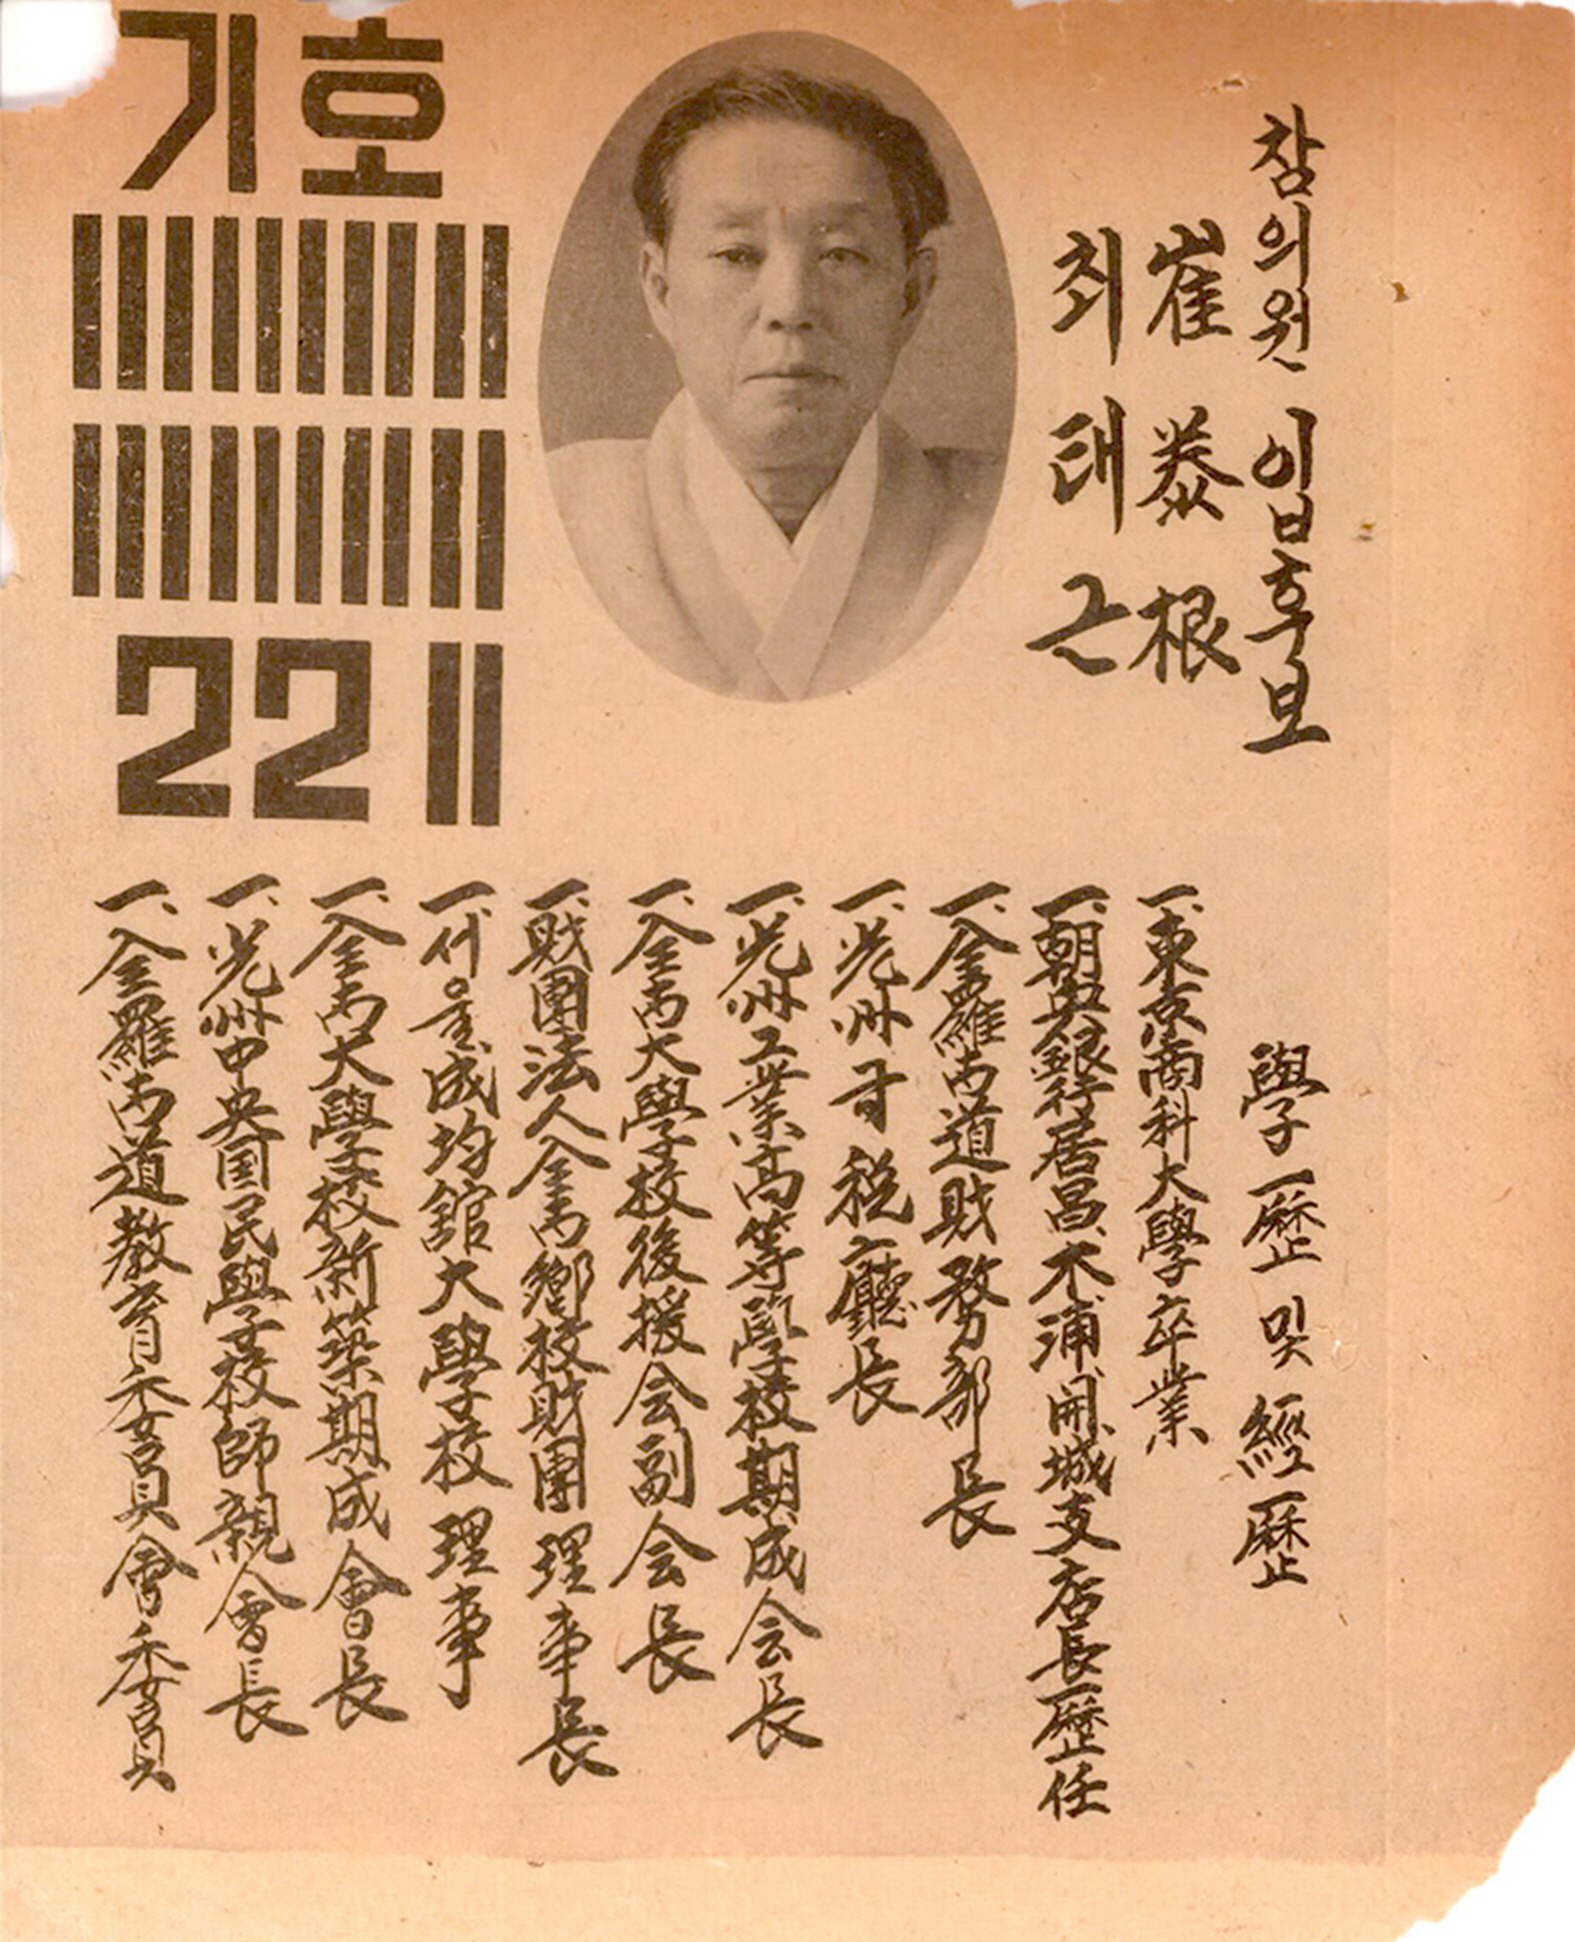 참의원 입후보
崔泰根
최태근
기호
22
學歷 및 經歷
一. 東京商科大學卒業
一. 朝興銀行居昌、木浦、開城支店長歷任
一. 全羅南道財務部長
一. 光州司稅廳長
一. 光州工業高等學校期成会会長
一. 全南大學校後援会副会長
一. 財團法人全南鄕校財團理事長
一. 서울成均館大學校理事
一. 全南大學校新築期成會長
一. 光州中央国民學校師親會長
一. 全羅南道敎育委員會委員